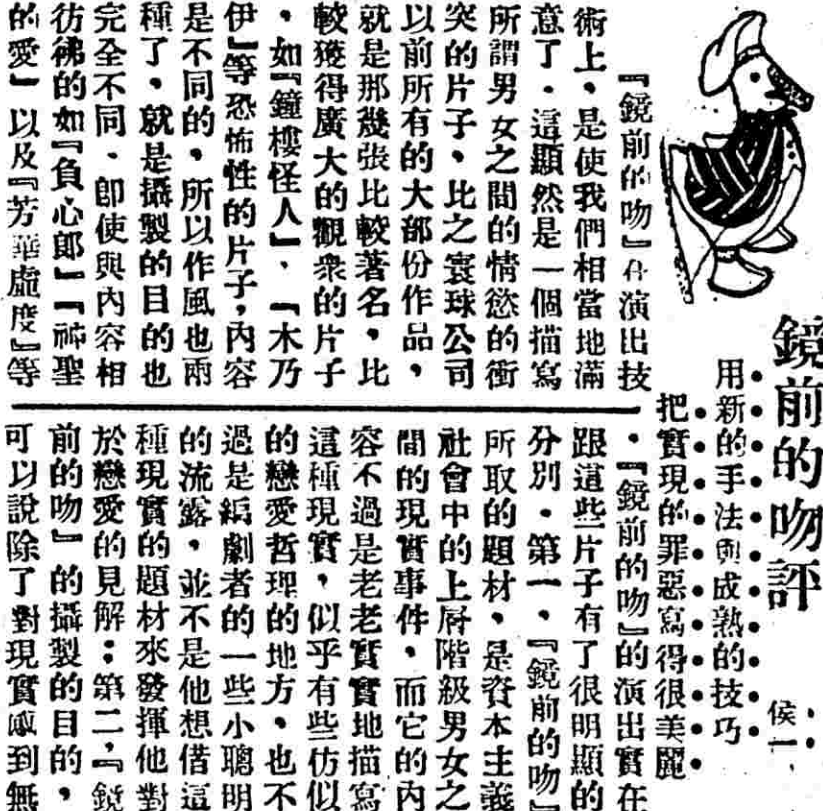 鏡前的吻評
侯一、
用新的手法與成熟的技巧
把實現的罪惡寫得很美麗
『鏡前的吻』在演出技
術上，是使我們相當地滿
意了．這顯然是一個描寫
所謂男女之間的情慾的衝
突的片子，比之寰球公司
以前所有的大部份作品，
就是那幾張比較著名，比
較獲得廣大的觀衆的片子
，如『鐘樓怪人』，『木乃
伊』等恐怖性的片子，內容
是不同的，所以作風也兩
種了，就是攝製的目的也
完全不同．即使與內容相
彷彿的如『負心郎』『神聖
的愛』以及『芳華虛度』等
．『鏡前的吻』的演出實在
跟這些片子有了很明顯的
分別．第一，『鏡前的吻』
所取的題材，是資本主義
社會中的上層階級男女之
間的現實事件，而它的內
容不過是老老實實地描寫
這種現實，似乎有些仿似
的戀愛哲理的地方，也不
過是編劇者的一些小聰明
的流露，並不是他想借這
種現實的題材來發揮他對
於戀愛的見解；第二，『鏡
前的吻』的攝製的目的，
可以說除了對現實感到無